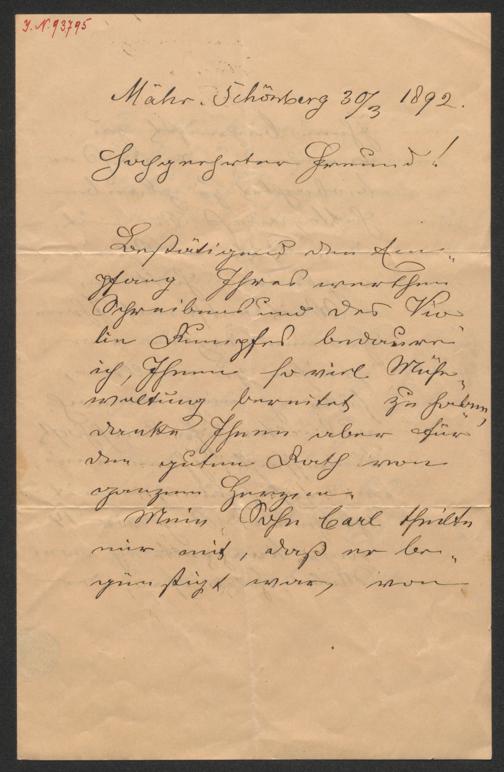 I. N. 93795
Mähr. Schönberg 30/3 1892.
Hochgeehrter Freund!
Bestätigend den Em-
pfang Ihres werthen
Schreibens und des Vio
lin Rumpfes bedaure
ich, Ihnen so viel Mühe-
waltung bereitet zu haben,
danke Ihnen aber für
den guten Rath von
ganzem Herzen.
Mein Sohn Carl theilte
mir mit, daß er be-
günstigt war, von